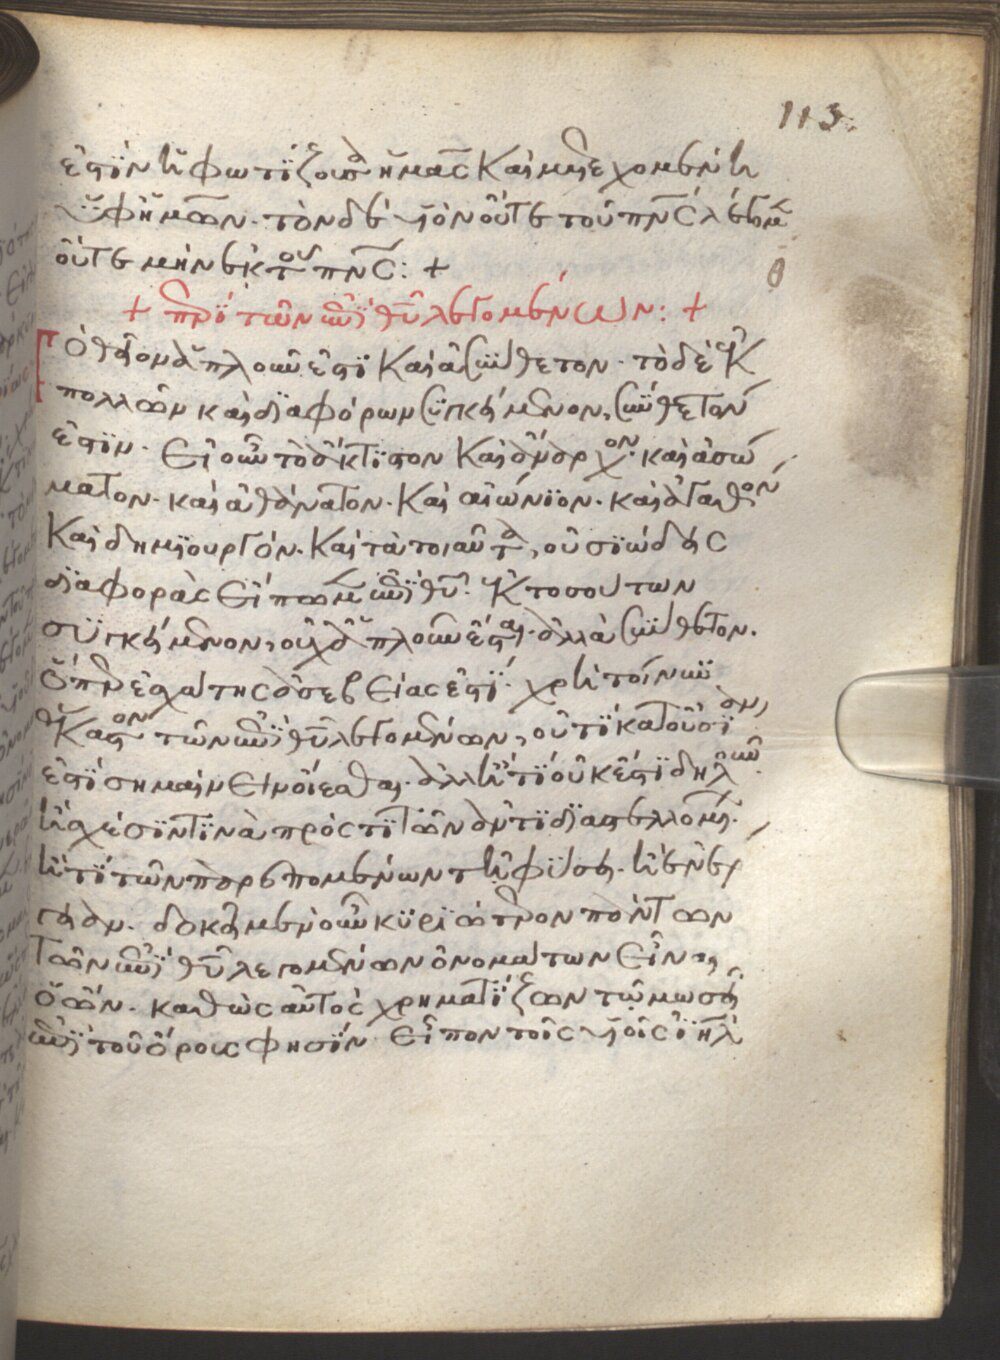 113
ἐστὶν ἡ φωτίζουσα ἡμᾶς καὶ μετεχομένη
ὑφ' ἡμῶν. τὸν δὲ υἱὸν οὔτε τοῦ πνς λέγομεν
οὔτε μὴν ἐκ τοῦ πνς: +
θ
+ περὶ τῶν ἐπὶ θυ λεγομένων: +
Τὸ θεῖον ἁπλοῦν ἐστι καὶ ἀσύνθετον. τὸ δὲ ἐκ
πολλῶν καὶ διαφόρων συγκείμενον, σύνθετόν
ἐστιν. εἰ οὖν τὸ ἄκτιστον καὶ ἄναρχον. καὶ ἀσώ
ματον. καὶ ἀθάνατον. καὶ αἰώνιον. καὶ ἀγαθὸν
καὶ δημιουργόν. καὶ τὰ τοιαῦτα, οὐσιώδεις
διαφορὰς εἴπωμεν ἐπὶ θυ. ἐκ τοσούτων
συγκείμενον, οὐχ ἁπλοῦν ἔσται. ἀλλὰ σύνθετον.
ὅπερ ἐσχάτης ἀσεβείας ἐστί. χρὴ τοίνυν
ἕκαστον τῶν ἐπὶ θυ λεγομένων, οὐ τί κατ' οὐσίαν
ἐστὶ σημαίνειν οἴεσθαι. ἀλλ' ἢ τί οὐκ ἔστι δηλοῦν.
ἢ σχέσιν τινὰ πρός τι τῶν ἀντιδιαστελλομένων.
ἢ τί τῶν παρεπομένων τῇ φύσει. ἢ ἐνέρ
γειαν. δοκεῖ μὲν οὖν κυριώτερον πάντων
τῶν ἐπὶ θυ λεγομένων ὀνομάτων εἶναι
ὁ ὤν. καθὼς αὐτὸς χρηματίζων τῷ μωσεῖ
ἐπὶ τοῦ ὄρους φησίν. εἶπον τοῖς υἱοῖς ιηλ